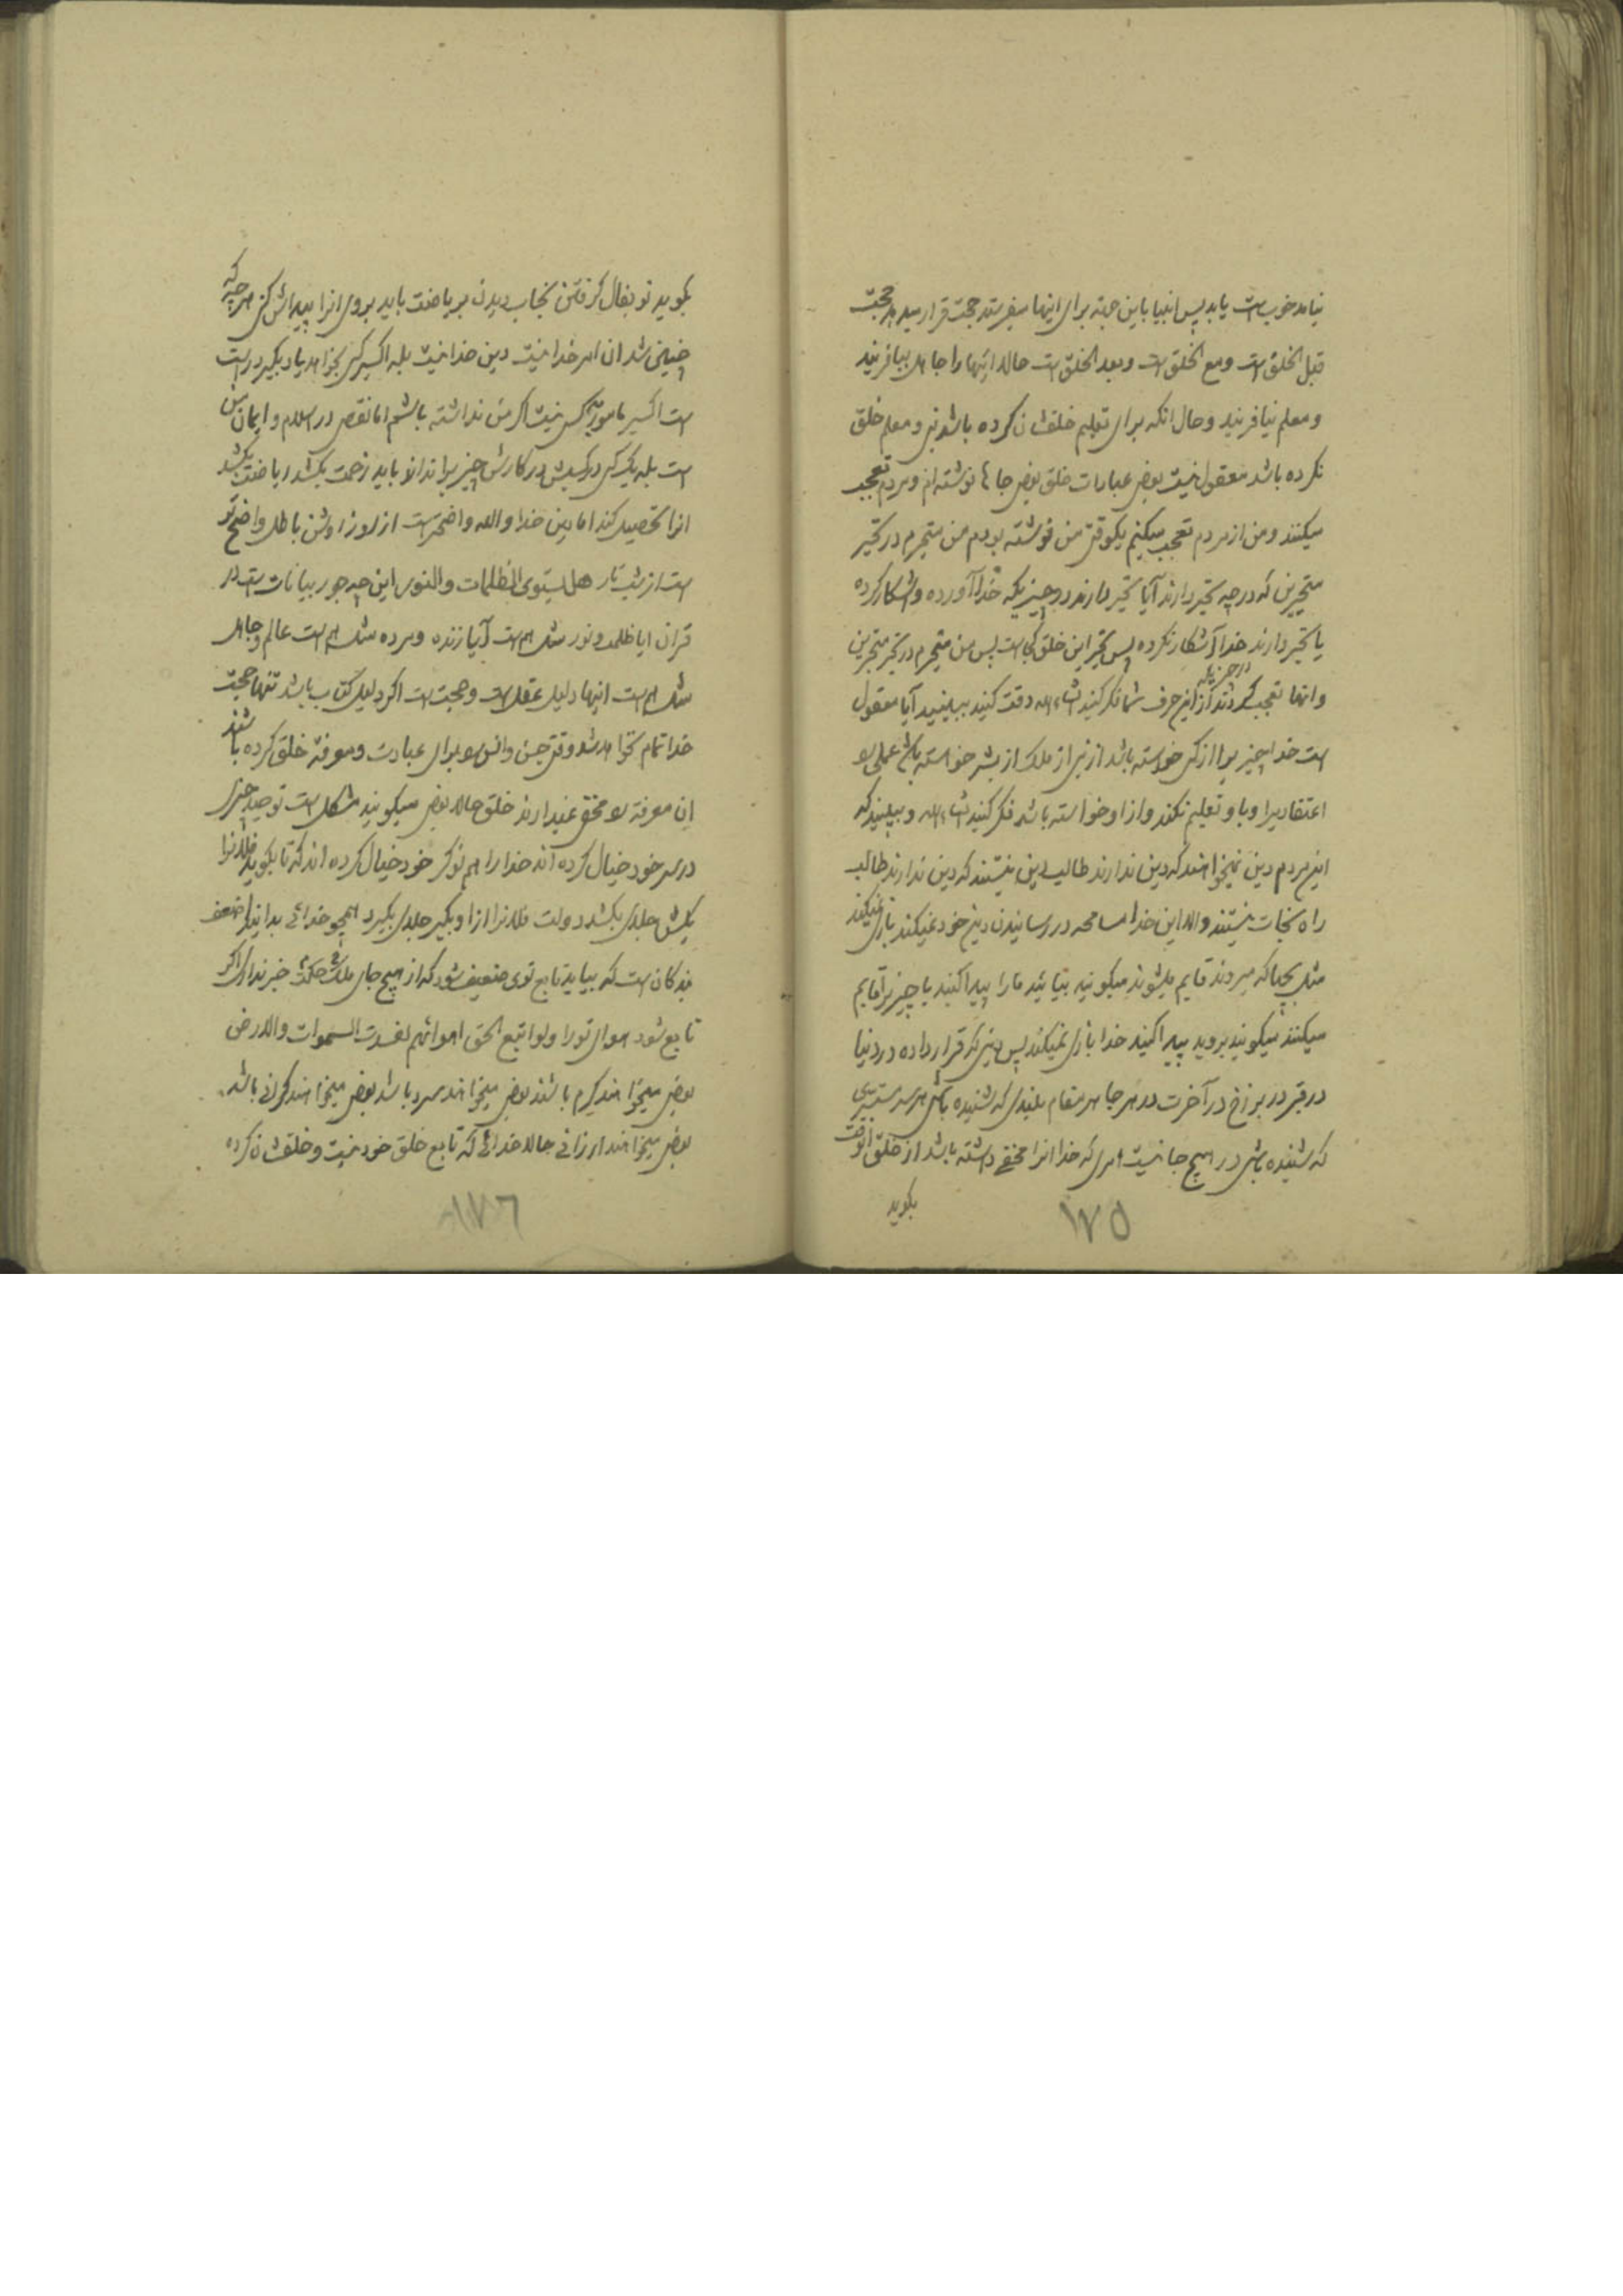 نیامد خوب است یا بد پس انبیا باین جهة برای اینها میفرستد حجت قرار میدهد حجت
قبل الخلق است و مع الخلق است و بعد الخلق است حالا اینها را جاهل بیافریند
و معلم نیافریند و حال آنکه برای تعلیم خلقشان کرده باشد نبی و معلم خلق
نکرده باشد معقول نیست بعض عبارات خلق بعض جاها نوشته‌ام و مردم تعجب
میکنند و من از مردم تعجب میکنم یکوقتی من نوشته بودم من متحیرم در تحیر
متحیرین که در چه تحیر دارند آیا تحیر دارند در چیزیکه خدا آورده و آشکار کرده
یا تحیر دارند خدا آشکار نکرده پس تحیر این خلق کجا است پس من متحیرم در تحیر متحیرین
و آنها تعجب کردند از این حرف شما فکر کنید انشاءالله دقت کنید ببینید آیا معقول
است خدا چیزیرا از کسی خواسته باشد از نبی از ملک از بشر خواسته باشد عملی را
اعتقادیرا و باو تعلیم نکند و از او خواسته باشد فکر کنید انشاءالله و ببینید که
این مردم دین نمیخواهند که دین ندارند طالب دین نیستند که دین ندارند طالب
راه نجات نیستند والا این خدا مسامحه در رسانیدن دین خود نمیکند بازی نمیکند
مثل بچها که میروند قایم میشوند میگویند بیائید ما را پیدا کنید یا چیزیرا قایم
میکنند میگویند بروید پیدا کنید خدا بازی نمیکند پس دینی که قرار داده در دنیا
در قبر در برزخ در آخرت در هر جا هر مقام بلندی که شنیده باشی هر سرّ مستتری
که شنیده باشی در هیچ جا نیست امری که خدا آنرا مخفی داشته باشد از خلق آنوقت
بگوید
۱۷۵
بگوید تو بفال گرفتن بخواب دیدن بریاضت باید بروی آنرا پیداش کنی هر چه که
چنین شد آن امر خدا نیست دین خدا نیست بله اکسیر کسی بخواهد یاد بگیرد درست
است اکسیر مأمور به کس نیست اگر من نداشته باشم اما نقص در اسلام و ایمان من
است بله یک کسی در کسبش در کارش چیزیرا نداند باید زحمت بکشد ریاضت بکشد
آنرا تحصیل کند اما دین خدا والله واضحتر است از روز روشن باطل واضحتر
است از شب تار هل یستوی الظلمات والنور این چه جور بیانات است در
قرآن آیا ظلمت و نور مثل هم است آیا زنده و مرده مثل هم است عالم و جاهل
مثل هم است اینها دلیل عقل است و حجت است اگر دلیل کتاب باشد تنها حجت
خدا تمام نخواهد شد وقتی جن و انس را برای عبادت و معرفة خلق کرده باشند
این معرفة را مخفی نمیدارند خلق حالا بعض میگویند مشکل است توحید چیزی
در سر خود خیال کرده‌اند خدا را هم نوکر خود خیال کرده‌اند که تا بگوید فلانرا
بکش جلدی بکشد دولت فلانرا از او بگیر جلدی بگیرد همچو خدائی بداند اضعف
بندگان است که بیاید تابع توی ضعیف شود که از هیچ جای ملک حکمت خبر نداری اگر
تابع شود هوای تو را ولو اتبع الحق اهوائهم لفسدت السموات والارض
بعض میخواهند گرم باشد بعض میخواهند سرد باشد بعض میخواهند گرانی باشد
بعض میخواهند ارزانی حالا خدائی که تابع خلق خود نیست و خلقشان کرده
۱۷۶